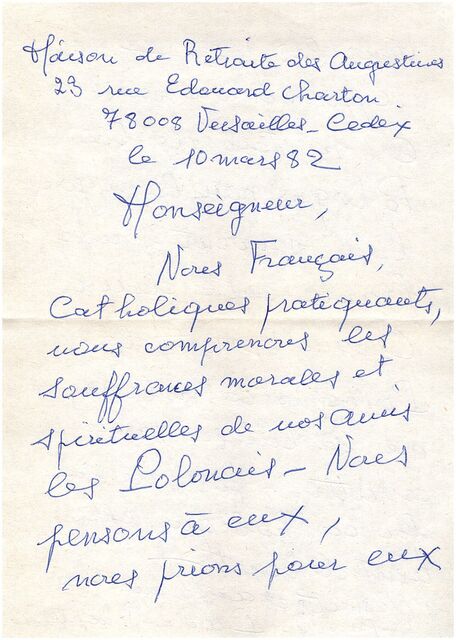 Maison de Retraite des Augustines
23 rue Edouard Charton
78008 Versailles - Cedex
le 10 mars 82
Monseigneur,
Nous Français,
Catholiques pratiquants,
nous comprenons les
souffrances morales et
spirituelles de nos amis
les Polonais - Nous
pensons à eux,
nous prions pour eux